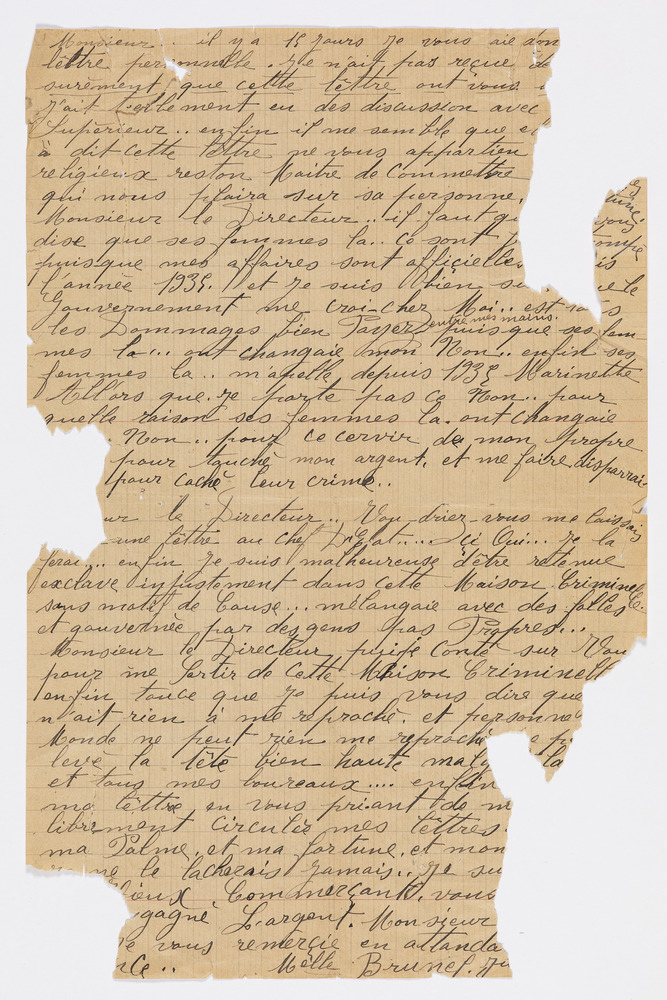 Monsieur.. il y a 15 jours Je vous aie don
lèttre per nnelle. Je n'ait pas reçue de
surèment que cette lèttre ont vous
J'ait tèllement eu des discussion avec
Supèrieur.. enfin il me semble que
à dit cette lèttre ne vous appartien
religieux reston Maitre de Commettre
qui nous plaira sur sa personne,
Monsieur le Directeur.. il faut qu vous
dise que ses femmes la.. Ce sont trompé
puisque mes affaires sont officielles is
l'année 1935. et Je suis bien que le
Gouvernement me croi-cher Moi.. est
les Dommages bien Payer entre mes mains. puisque ses fam
mes la... ont changaie mon Non.. enfin ses
femmes la.. m'apelle depuis 1935 Marinette
All'ors que Je porte pas ce Non.. pour
quelle raison ses femmes la. ont changaie
. Non.. pour ce cervir de mon propre
pour touché mon argent, et me faire disparrai
pour caché leur crime..
ur le Directeur.. Vou-drier-vous me laissais
une lèttre au chef D'Etat..... çi Oui... Je la
ferai... enfin Je suis malheureuse d'être retenue
exclave injustement dans cette Maison Criminelle.
sans motif de Cause... mélangaie avec des folles
et gouvernée par des gens pas Propres...
Monsieur le Directeur puije Conté sur Vou
pour me Sortir de Cette Maison Criminell
enfin touce que Je puis vous dire que
n'ait rien à me reproché. et personne
Monde ne peut rien me reproché e p
levé la tête bien haute malg la
et tous mes boureaux.... enfin
ma lèttre en vous priant de m
librement Circuler mes lèttres.
ma Palme, et ma fortune, et mon
ne le lacherais Jamais.. Je su
lieux Commerçante, vous
gagné L'argent. Monsieur
e vous remercie en attanda
nce.. Mèlle Brunel. Ju